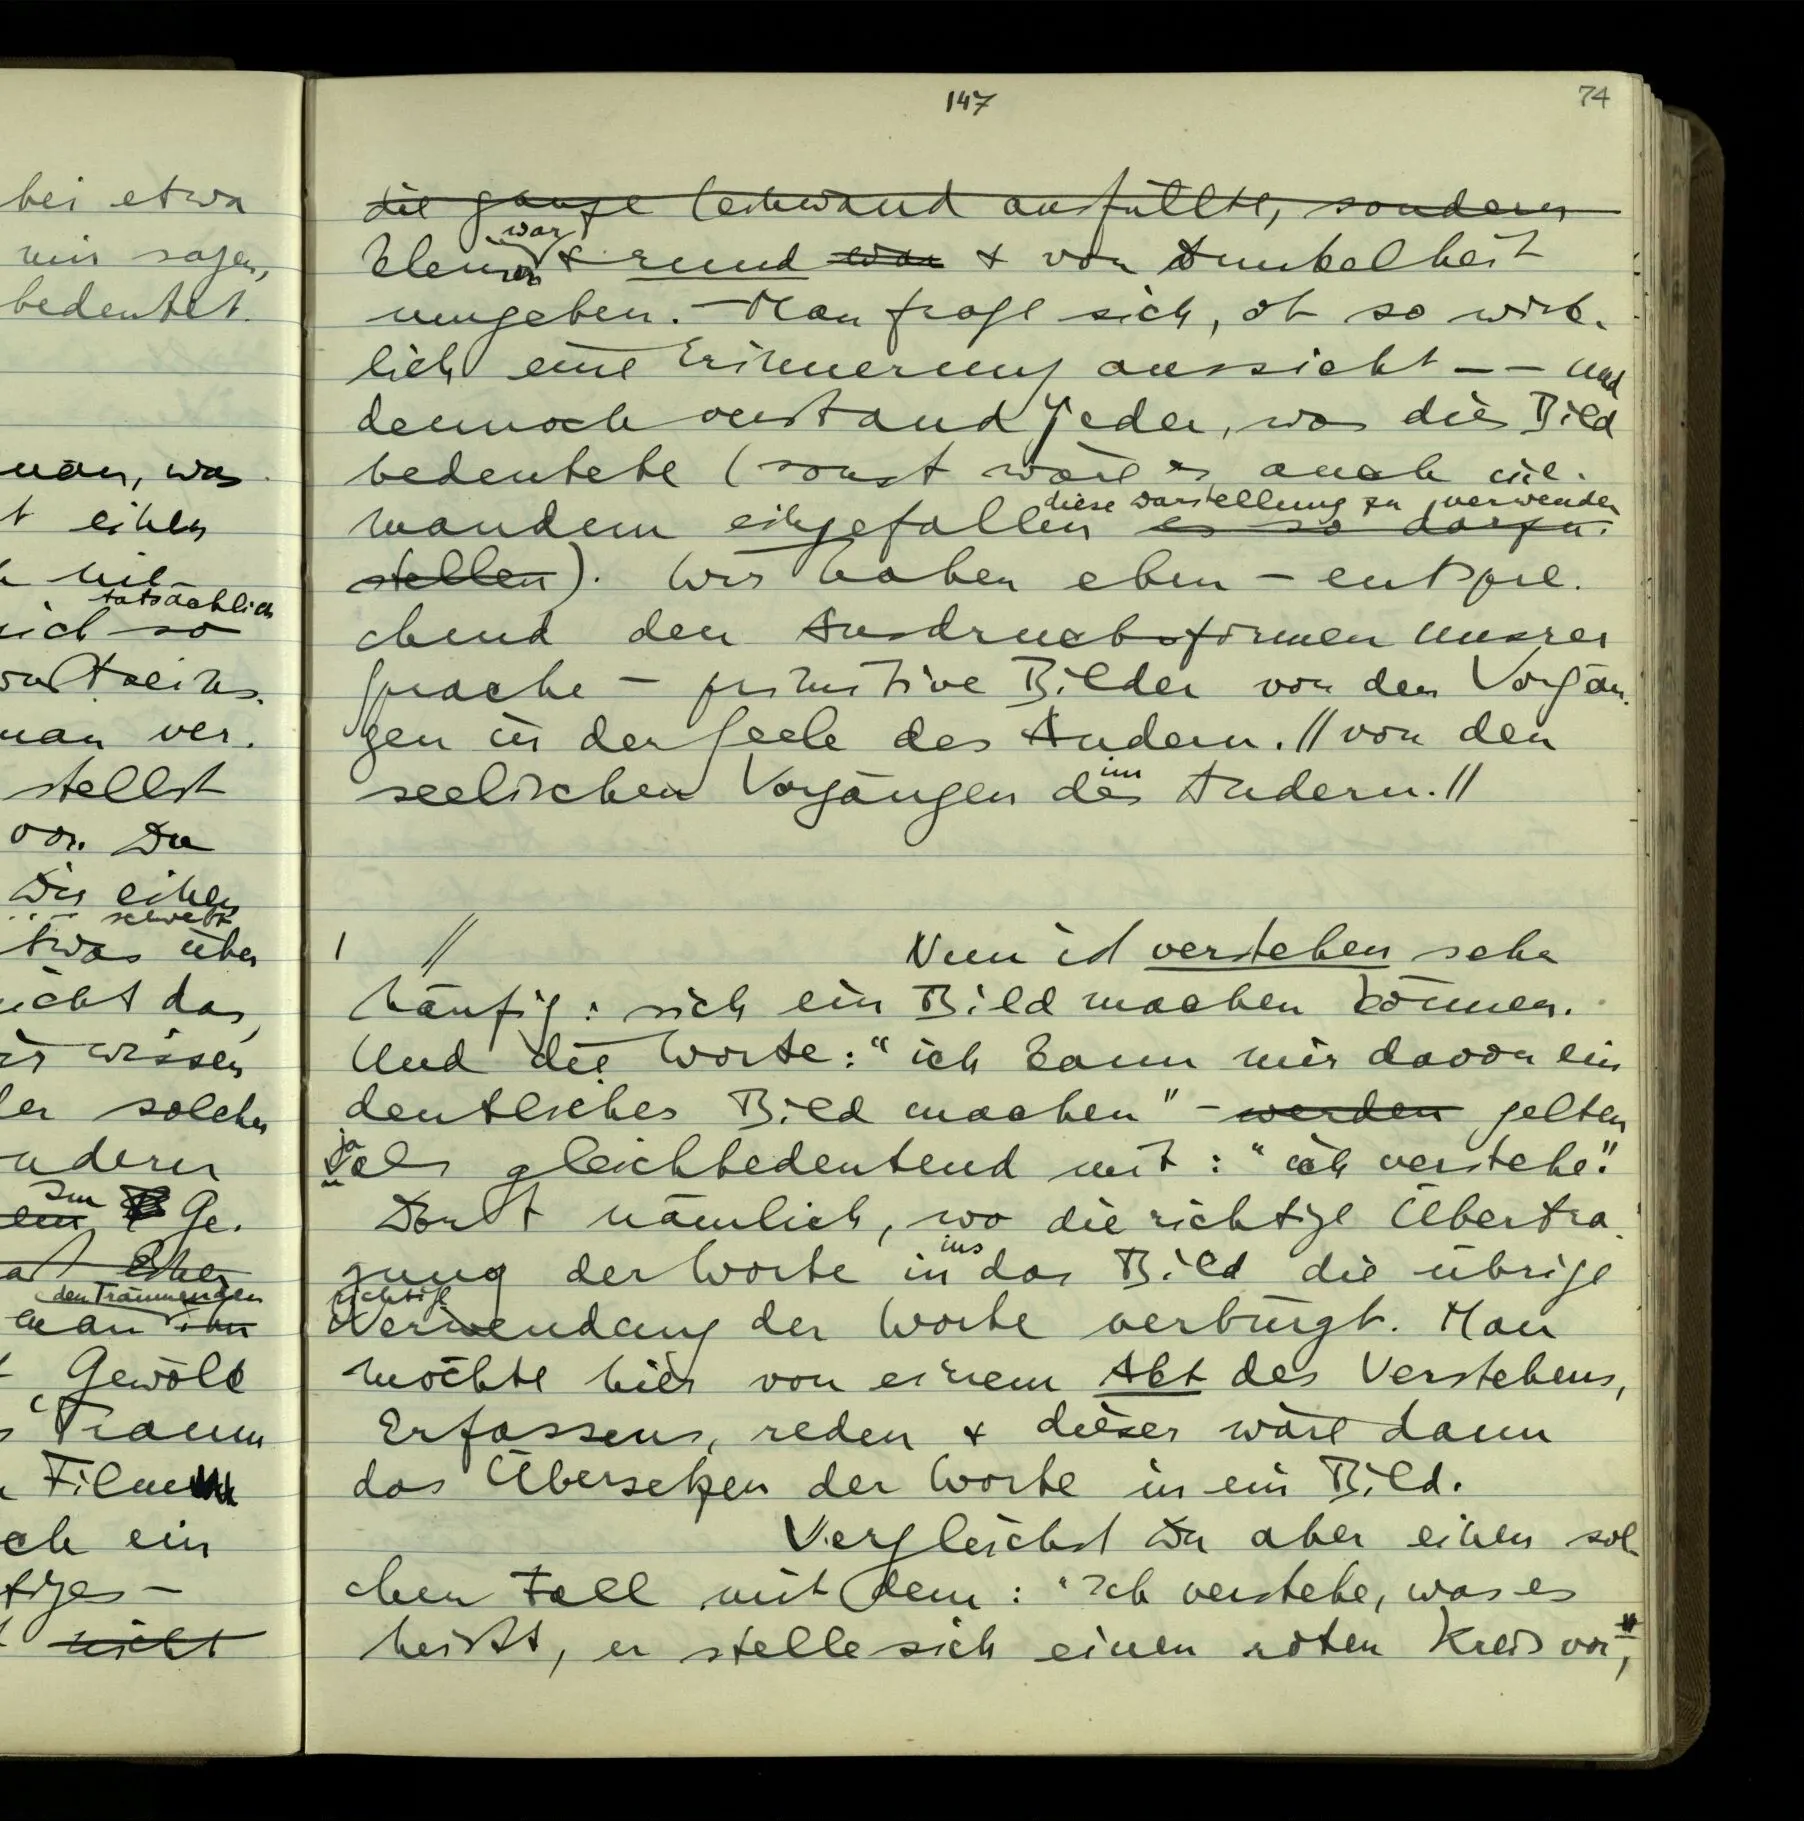 bei etwa
mir sagen,
bedeutet.
man, was
t einen
tatsächlich
sich so
man ver-
stellst
vor. Du
Dir einen
schwebt
etwas über
nicht das,
wir wissen
der solcher
anderer
Ge-
den Träumenden
man ihn
Gewölk
Traum
Film
ch ein
tiges –
nicht
147
74
die ganze Leinwand ausfüllte, sondern
war
klein & rund war & von Dunkelheit
umgeben. – Man frage sich, ob so wirk-
lich eine Erinnerung aussieht – – und
dennoch verstand jeder, was dies Bild
bedeutete (sonst wäre es auch nie-
diese Darstellung zu verwenden
mandem eingefallen es so darzu-
stellen). Wir haben eben – entspre-
chend den Ausdrucksformen unsrer
Sprache – primitive Bilder von den Vorgän-
gen in der Seele des Andern. // von den
im
seelischen Vorgängen des Andern. //
| // Nun ist verstehen sehr
häufig: sich ein Bild machen können.
Und die Worte: “ich kann mir davon ein
deutliches Bild machen” – werden gelten
ja
als gleichbedeutend mit: “ich verstehe”.
Dort nämlich, wo die richtige Übertra-
ins
gung der Worte in das Bild die übrige
richtige
Verwendung der Worte verbürgt. Man
möchte hier von einem Akt des Verstehens,
Erfassens, reden & dieser wäre dann
das Übersetzen der Worte in ein Bild.
Vergleichst Du aber einen sol-
chen Fall mit dem: “Ich verstehe, was es
heißt, er stelle sich einen roten Kreis vor”,